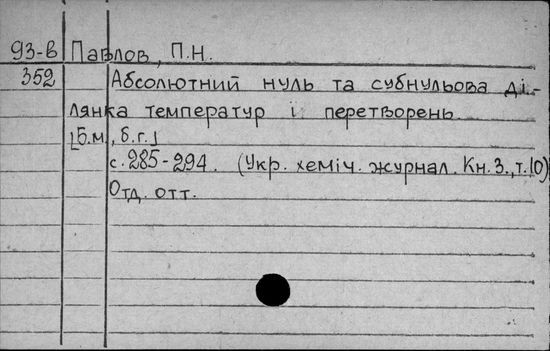 93-в Павлов, П.Н.
352 Абсолютний нуль та субнульова ді-
лянка температур і перетворень.
[Б.м., б.г.]
с. 285-294. (Укр. хеміч. журнал. Кн. 3., т. 10)
Отд. отт.